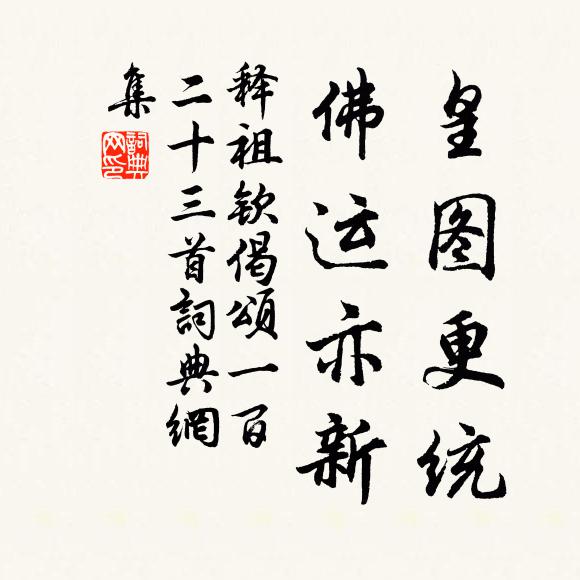 皇图更统
佛运亦新
释祖钦偈颂一百
二十三首詞典網
集
詞典
网印